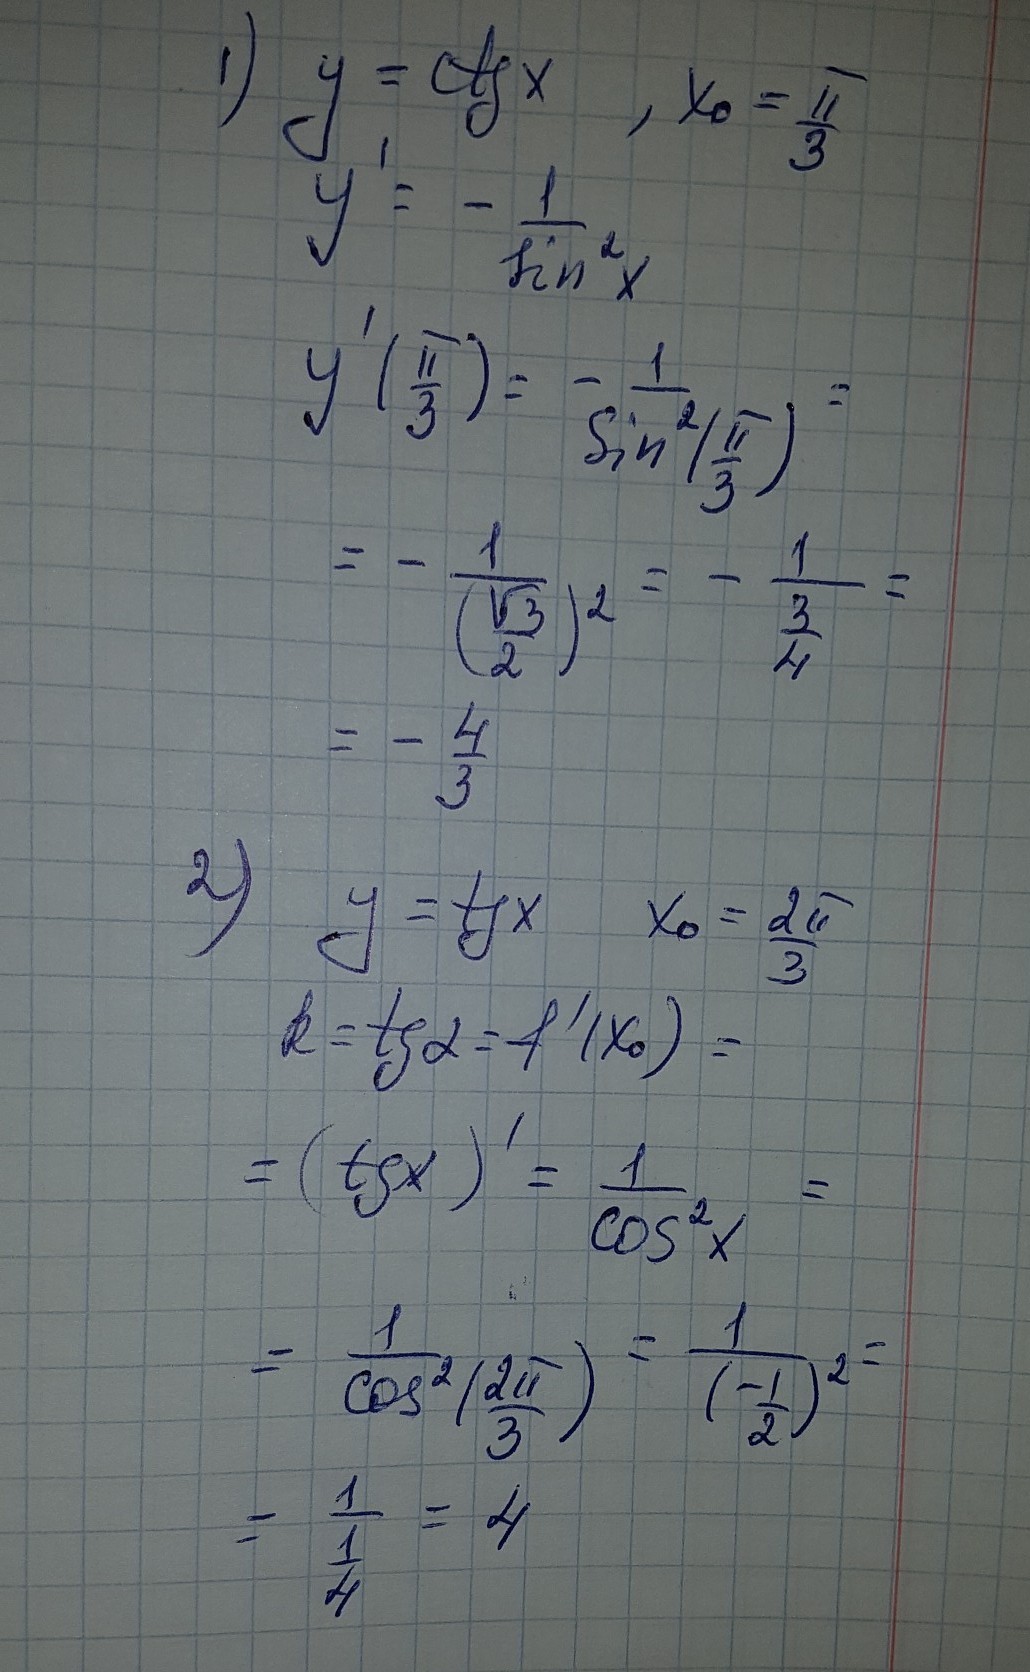 1) y = ctgx , x₀ = π/3
y' = - 1/sin²x
y'(π/3) = - 1/sin²(π/3) =
= - 1/(√3/2)² = - 1/(3/4) =
= - 4/3
2) y = tgx x₀ = 2π/3
k = tgα = f'(x₀) =
= (tgx)' = 1/cos²x =
= 1/cos²(2π/3) = 1/(-1/2)² =
= 1/(1/4) = 4